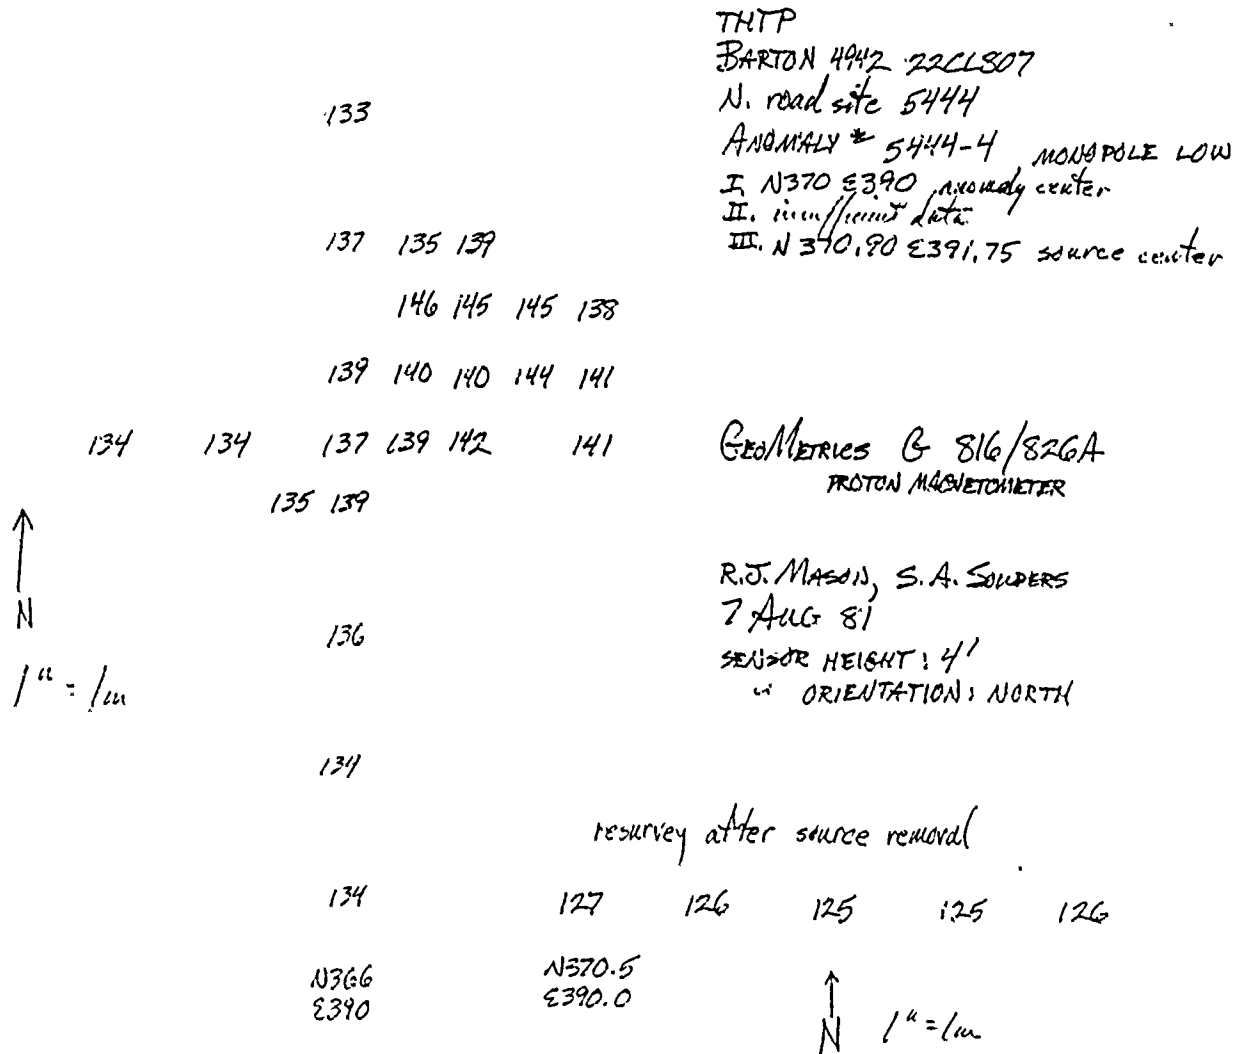 THTP
BARTON 4942 22CL807
N. road site 5444
ANOMALY # 5444-4 MONOPOLE LOW
I. N370 E390 anomaly center
II. insufficient data
III. N 370.90 E391.75 source center
133
137 135 139
146 145 145 138
139 140 140 144 141
134 134 137 139 142 141
135 139
GEOMETRICS G 816/826A
PROTON MAGNETOMETER
N
1" = 1m
R.J. MASON, S.A. SOUDERS
7 AUG 81
SENSOR HEIGHT: 4'
" ORIENTATION: NORTH
136
134
134
N366
E390
resurvey after source removal
127 126 125 125 126
N370.5
E390.0
N 1" = 1m